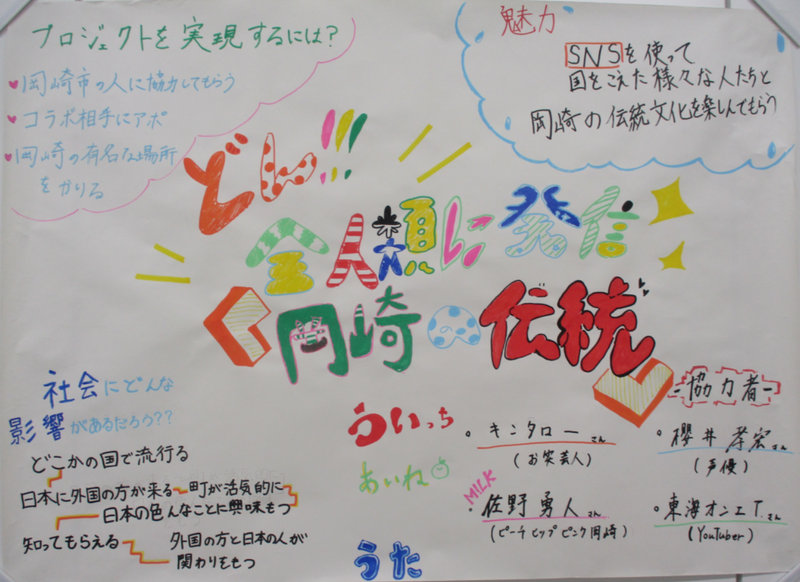 プロジェクトを実現するには?
♥岡崎市の人に協力してもらう
♥コラボ相手にアポ
♥岡崎の有名な場所
をかりる
魅力
SNSを使って
国をこえた様々な人たちと
岡崎の伝統文化を楽しんでもらう
どん!!!
全人類に発信
「岡崎の伝統」
社会にどんな
影響があるだろう??
どこかの国で流行る
日本に外国の方が来る 町が活気的に
日本の色んなことに興味もつ
知ってもらえる 外国の方と日本の人が
関わりをもつ
ういっち
あいね
うた
協力者
・キンタローさん
(お笑芸人)
・櫻井孝宏さん
(声優)
MILK
・佐野勇人さん
(ピーチヒップピンク岡崎)
・東海オンエアさん
(YouTuber)